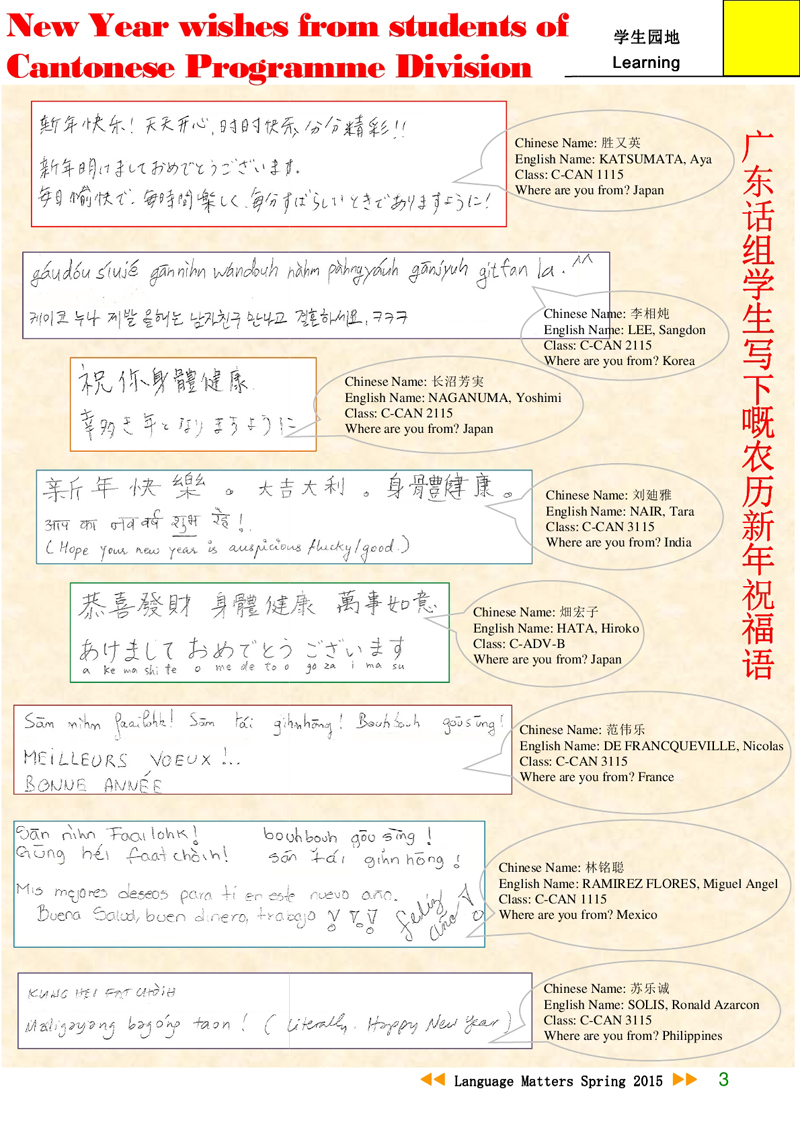 New Year wishes from students of
Cantonese Programme Division
学生园地
Learning
广东话组学生写下嘅农历新年祝福语
新年快乐! 天天开心, 时时快乐, 分分精彩!!
新年明けましておめでとうございます。
毎日愉快で、毎時間楽しく、毎分すばらしいときでありますように!
Chinese Name: 胜又英
English Name: KATSUMATA, Aya
Class: C-CAN 1115
Where are you from? Japan
gáudóu síujé gānnìhn wándouh nàhm pàhngyáuh gānjyuh gitfan la. ^^
케이코 누나 제발 올해는 남자친구 만나고 결혼하세요, ㅋㅋㅋ
Chinese Name: 李相炖
English Name: LEE, Sangdon
Class: C-CAN 2115
Where are you from? Korea
祝你身體健康
幸多き年となりますように
Chinese Name: 长沼芳実
English Name: NAGANUMA, Yoshimi
Class: C-CAN 2115
Where are you from? Japan
新年快樂。大吉大利。身體健康。
आप का नव वर्ष शुभ रहे!
(Hope your new year is auspicious /lucky/good.)
Chinese Name: 刘迪雅
English Name: NAIR, Tara
Class: C-CAN 3115
Where are you from? India
恭喜發財 身體健康 萬事如意
あけまして おめでとう ございます
a ke ma shi te o me de to o go za i ma su
Chinese Name: 畑宏子
English Name: HATA, Hiroko
Class: C-ADV-B
Where are you from? Japan
Sān nìhn faailohk! Sān tái gihnhōng! Bouhbouh gōusīng!
MEILLEURS VOEUX !..
BONNE ANNÉE
Chinese Name: 范伟乐
English Name: DE FRANCQUEVILLE, Nicolas
Class: C-CAN 3115
Where are you from? France
Sān nìhn Faailohk! bouhbouh gōu sīng!
Gūng héi faat chòih! sān tái gihn hōng!
Mis mejores deseos para ti en este nuevo año.
Buena Salud, buen dinero, trabajo
feliz año
Chinese Name: 林铭聪
English Name: RAMIREZ FLORES, Miguel Angel
Class: C-CAN 1115
Where are you from? Mexico
KUNG HEI FAT CHÒIH
Maligayang bagong taon! (Literally, Happy New Year)
Chinese Name: 苏乐诚
English Name: SOLIS, Ronald Azarcon
Class: C-CAN 3115
Where are you from? Philippines
Language Matters Spring 2015
3